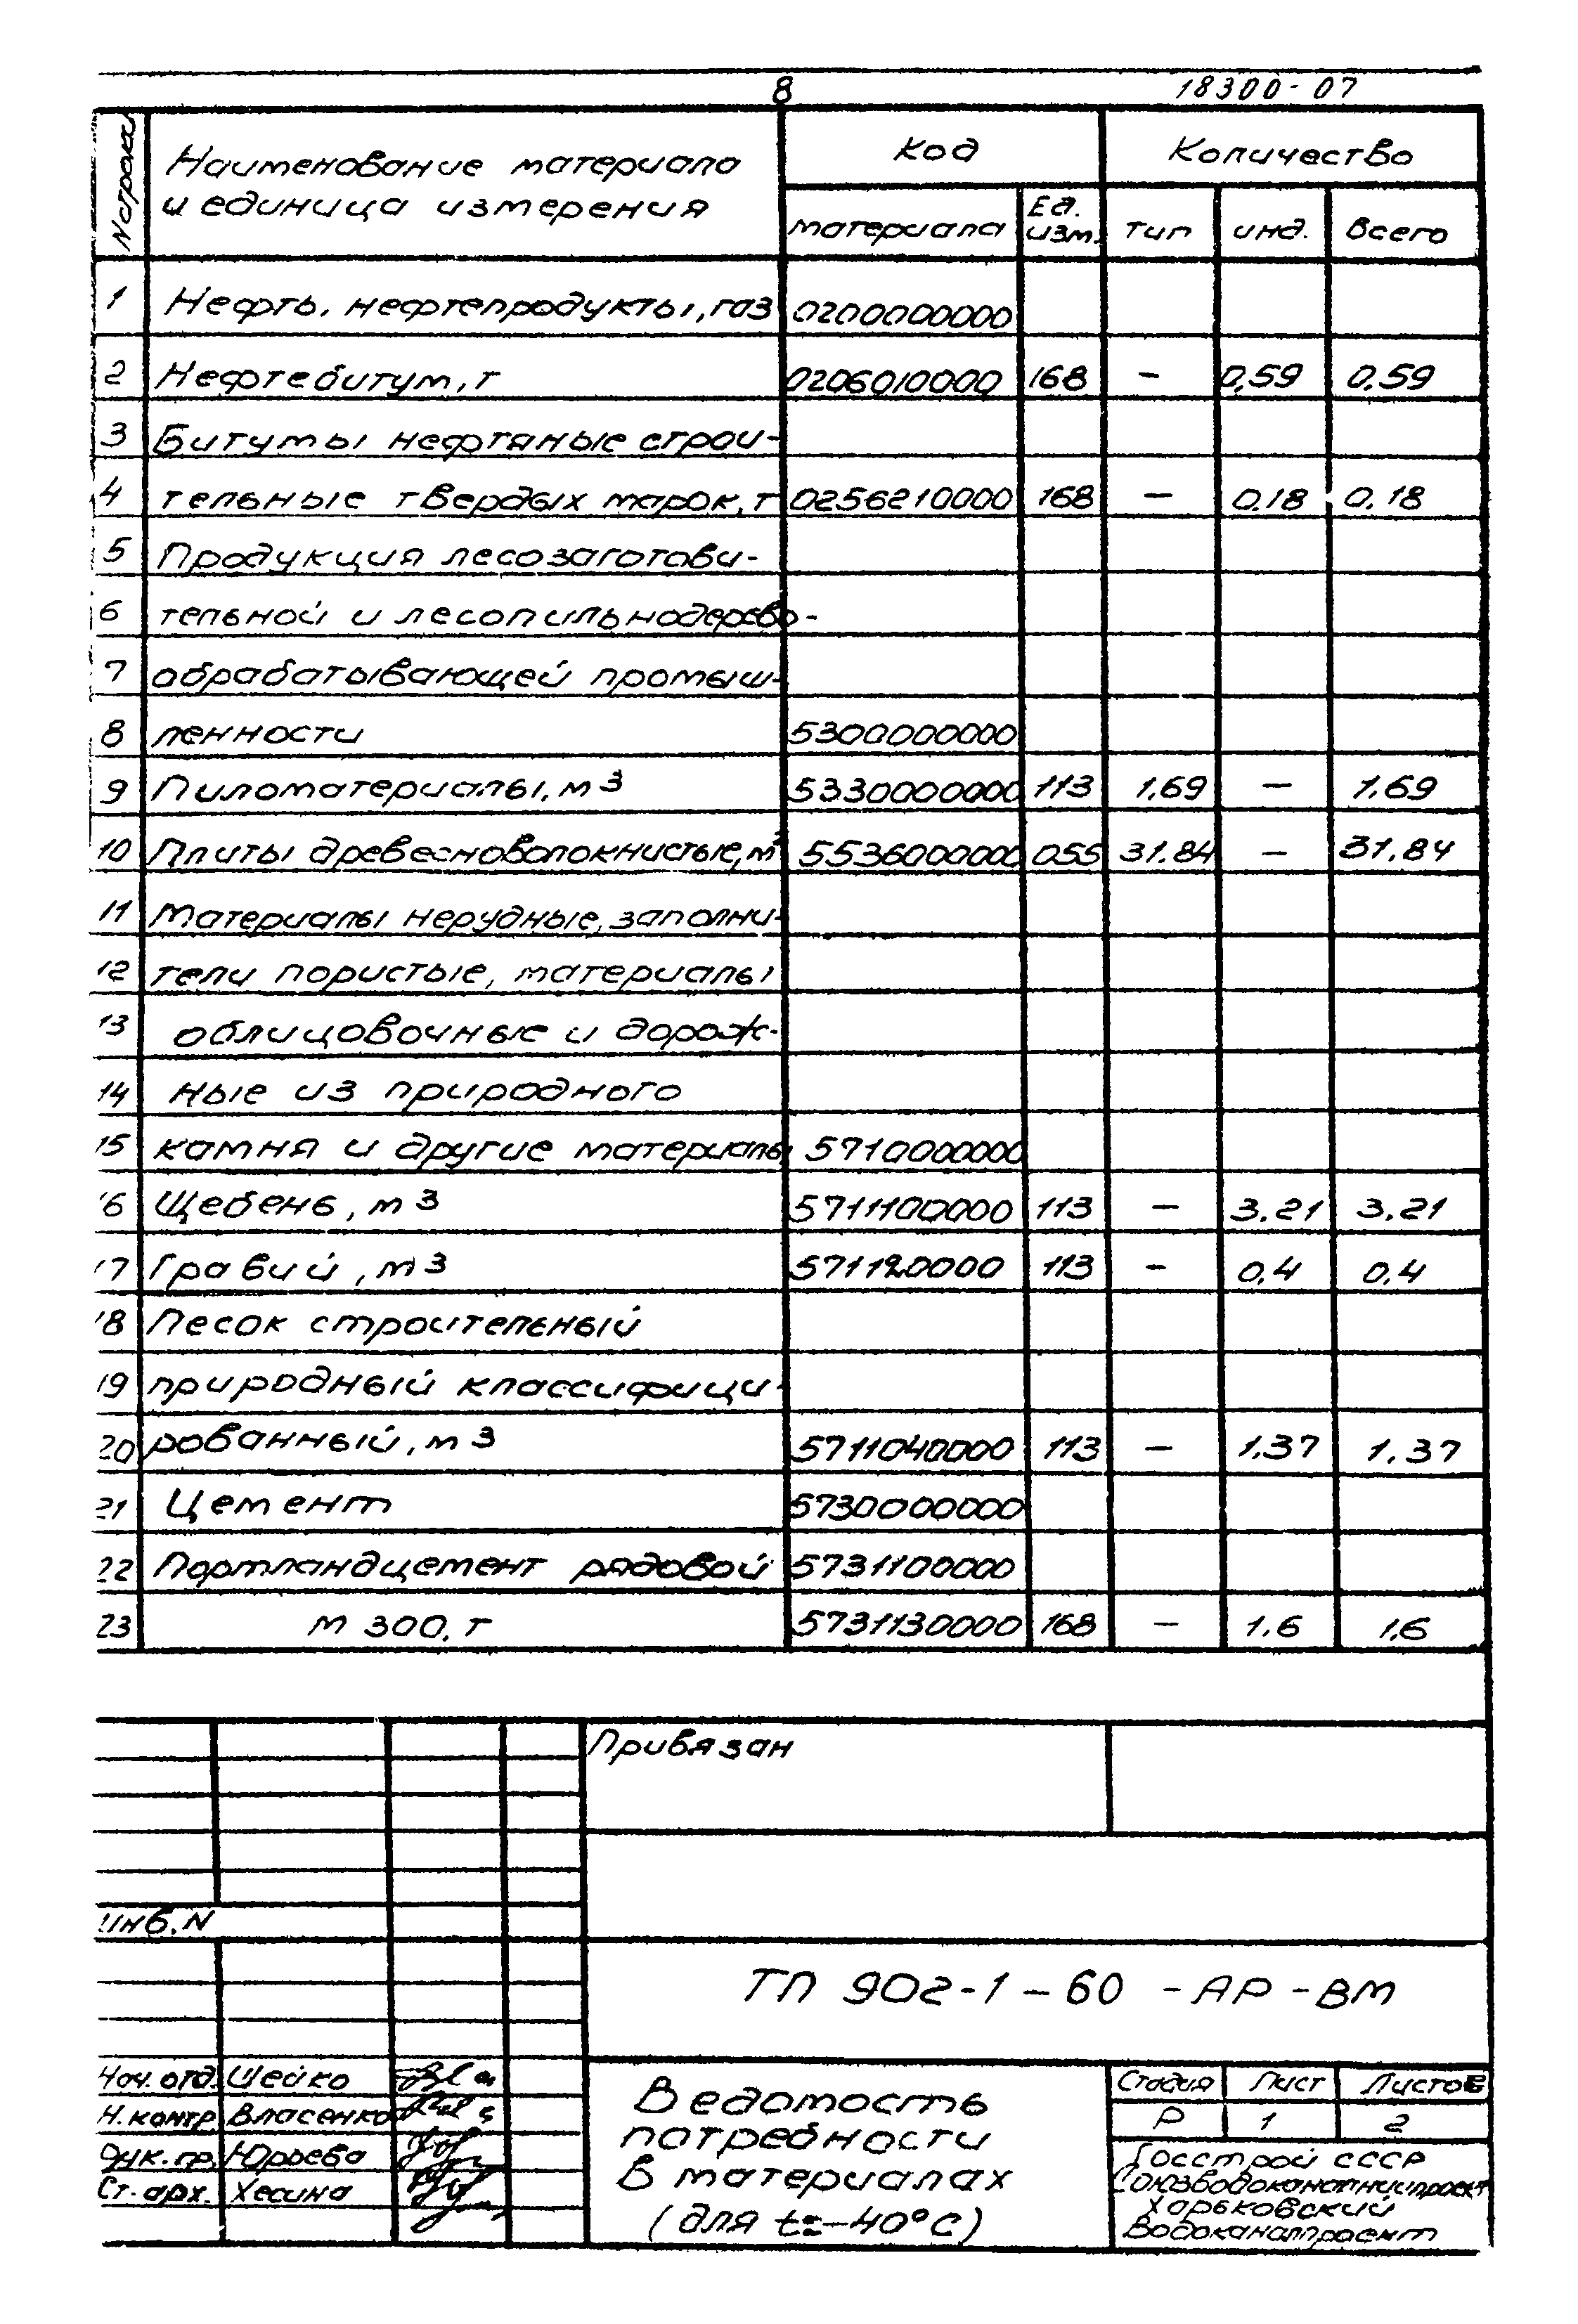 8 18300-07
N строки Наименование материала и единица измерения Код Количество
материала Ед. изм. тип инд. Всего
1 Нефть, нефтепродукты, газ 0200000000
2 Нефтебитум, т 0206010000 168 — 0,59 0,59
3 Битумы нефтяные строи-
4 тельные твердых марок, т 0256210000 168 — 0.18 0.18
5 Продукция лесозаготови-
6 тельной и лесопильнодерево-
7 обрабатывающей промыш-
8 ленности 5300000000
9 Пиломатериалы, м3 5330000000 113 1,69 — 1,69
10 Плиты древесноволокнистые, м2 5536000000 055 31.84 — 31.84
11 Материалы нерудные, заполни-
12 тели пористые, материалы
13 облицовочные и дорож-
14 ные из природного
15 камня и другие материалы 5710000000
16 Щебень, м3 5711100000 113 — 3.21 3.21
17 Гравий, м3 5711120000 113 — 0,4 0,4
18 Песок строительный
19 природный классифици-
20 рованный, м3 5711040000 113 — 1,37 1.37
21 Цемент 5730000000
22 Портландцемент рядовой 5731100000
23 м 300, т 5731130000 168 — 1.6 1,6
Привязан
Инв. N
ТП 902-1-60 -АР-ВМ
Нач. отд. Шейко
Н. контр. Власенко
Рук. гр. Юрьева
Ст. арх. Хесина
Ведомость
потребности
в материалах
(для t=-40°С)
Стадия Лист Листов
Р 1 2
Госстрой СССР
Союзводоканалниипроект
Харьковский
Водоканалпроект